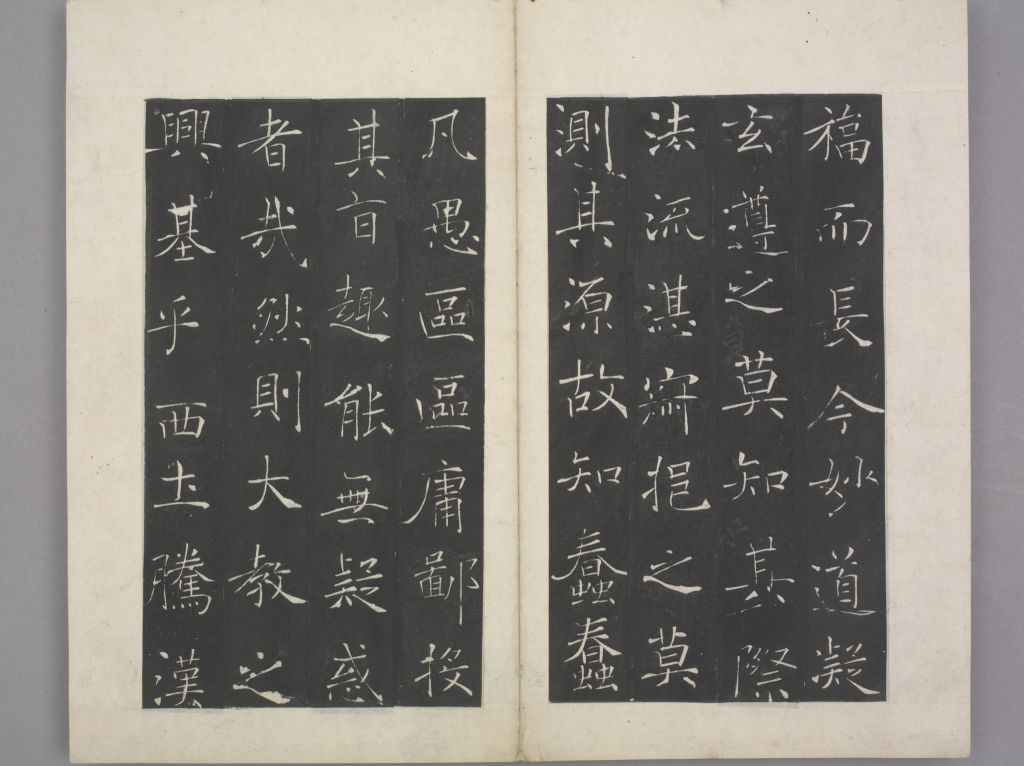 福而長今妙道凝
玄遵之莫知其際
法流湛寂挹之莫
測其源故知蠢蠢
凡愚區區庸鄙投
其旨趣能無疑惑
者哉然則大教之
興基乎西土騰漢